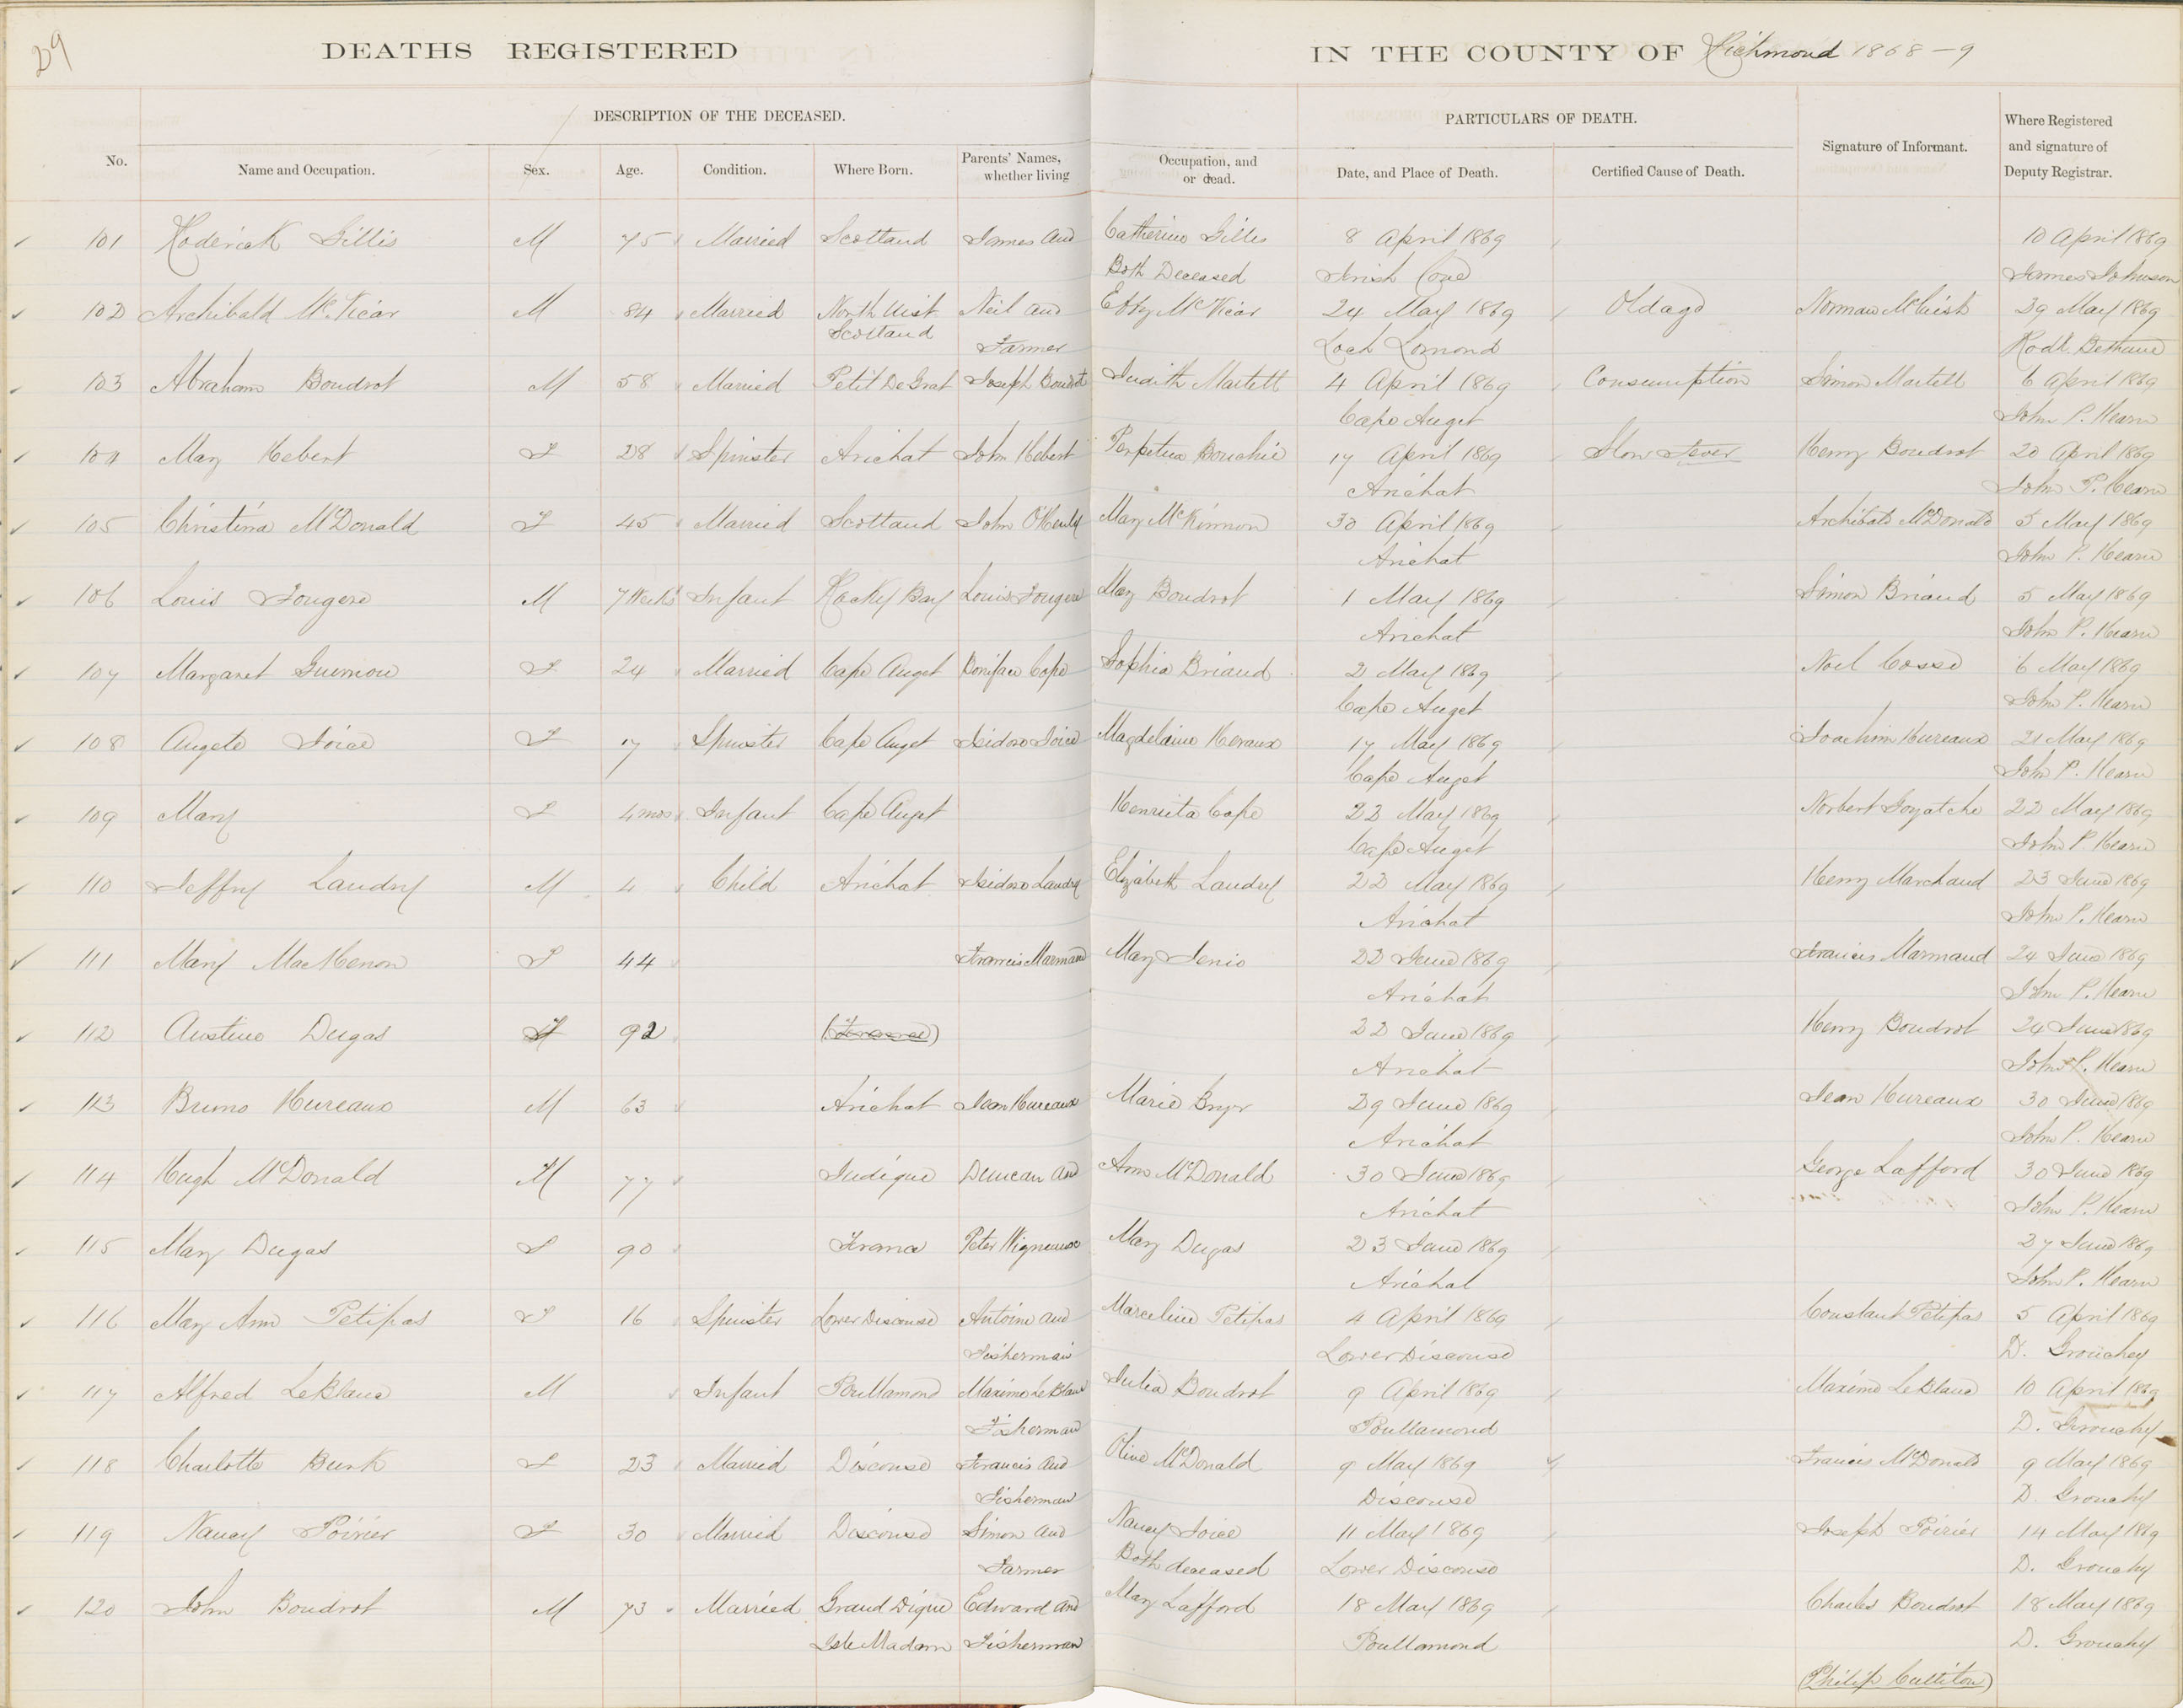 29
DEATHS REGISTERED IN THE COUNTY OF Richmond 1868-9
DESCRIPTION OF THE DECEASED. PARTICULARS OF DEATH.
No. Name and Occupation. Sex. Age. Condition. Where Born. Parents' Names, whether living Occupation, and or dead. Date, and Place of Death. Certified Cause of Death. Signature of Informant. Where Registered and signature of Deputy Registrar.
101 Roderick Gillis M 75 Married Scotland James and Catherine Gillis 8 April 1869 10 April 1869
Both Deceased Irish Cove James Johnson
102 Archibald McVicar M 84 Married North Uist Neil and Effy McVicar 24 May 1869 Old age Norman McCuish 29 May 1869
Scotland Farmer Loch Lomond Rodk. Bethune
103 Abraham Boudrot M 58 Married Petit De Grat Joseph Boudrot Judith Martell 4 April 1869 Consumption Simon Martell 6 April 1869
Cape Auget John P. Hearn
104 Mary Hebert F 28 Spinster Arichat John Hebert Perpetua Bouchie 17 April 1869 Slow Fever Henry Boudrot 20 April 1869
Arichat John P. Hearn
105 Christina McDonald F 45 Married Scotland John O'Henly Mary McKinnon 30 April 1869 Archibald McDonald 5 May 1869
Arichat John P. Hearn
106 Louis Fougere M 7 Weeks Infant Rocky Bay Louis Fougere Mary Boudrot 1 May 1869 Simon Briand 5 May 1869
Arichat John P. Hearn
107 Margaret Guemow F 24 Married Cape Auget Boniface Cope Sophia Briand 2 May 1869 Noel Cosse 6 May 1869
Cape Auget John P. Hearn
108 Angele Joice F 17 Spinster Cape Auget Isidore Joice Magdelaine Heraux 17 May 1869 Joachim Hureaux 21 May 1869
Cape Auget John P. Hearn
109 Mary F 4 mos Infant Cape Auget Henrieta Cope 22 May 1869 Norbert Goyatche 22 May 1869
Cape Auget John P Hearn
110 Jeffry Landry M 4 Child Arichat Isidore Landry Elizabeth Landry 22 May 1869 Henry Marchand 23 June 1869
Arichat John P. Hearn
111 Mary MacMenon F 44 Francis Marmaud Mary Jenio 22 June 1869 Francis Marmaud 24 June 1869
Arichat John P. Hearn
112 Austine Dugas 92 (France) 22 June 1869 Henry Boudrot 24 June 1869
Arichat John P. Hearn
113 Bruno Hureaux M 63 Arichat Jean Hureaux Marie Bryer 29 June 1869 Jean Hureaux 30 June 1869
Arichat John P. Hearn
114 Hugh McDonald M 77 Judique Duncan and Ann McDonald 30 June 1869 George Lafford 30 June 1869
Arichat John P. Hearn
115 Mary Dugas F 90 France Peter Vigneaux Mary Dugas 23 June 1869 27 June 1869
Arichat John P. Hearn
116 Mary Ann Petipas F 16 Spinster Lower Discouse Antoine and Marceline Petipas 4 April 1869 Constant Petipas 5 April 1869
Fisherman Lower Discouse D. Grouchy
117 Alfred LeBlanc M Infant Poullamond Maxime LeBlanc Julia Boudrot 9 April 1869 Maxime LeBlanc 10 April 1869
Fisherman Poullamond D. Grouchy
118 Charlotte Burk F 23 Married Discouse Francis and Olive McDonald 9 May 1869 Francis McDonald 9 May 1869
Fisherman Discouse D. Grouchy
119 Nancy Poirier F 30 Married Discouse Simon and Nancy Joice 11 May 1869 Joseph Poirier 14 May 1869
Farmer Both deceased Lower Discouse D. Grouchy
120 John Boudrot M 73 Married Grand Digue Edward and Mary Lafford 18 May 1869 Charles Boudrot 18 May 1869
Isle Madam Fisherman Poullamond D. Grouchy
(Philip Cullitou)